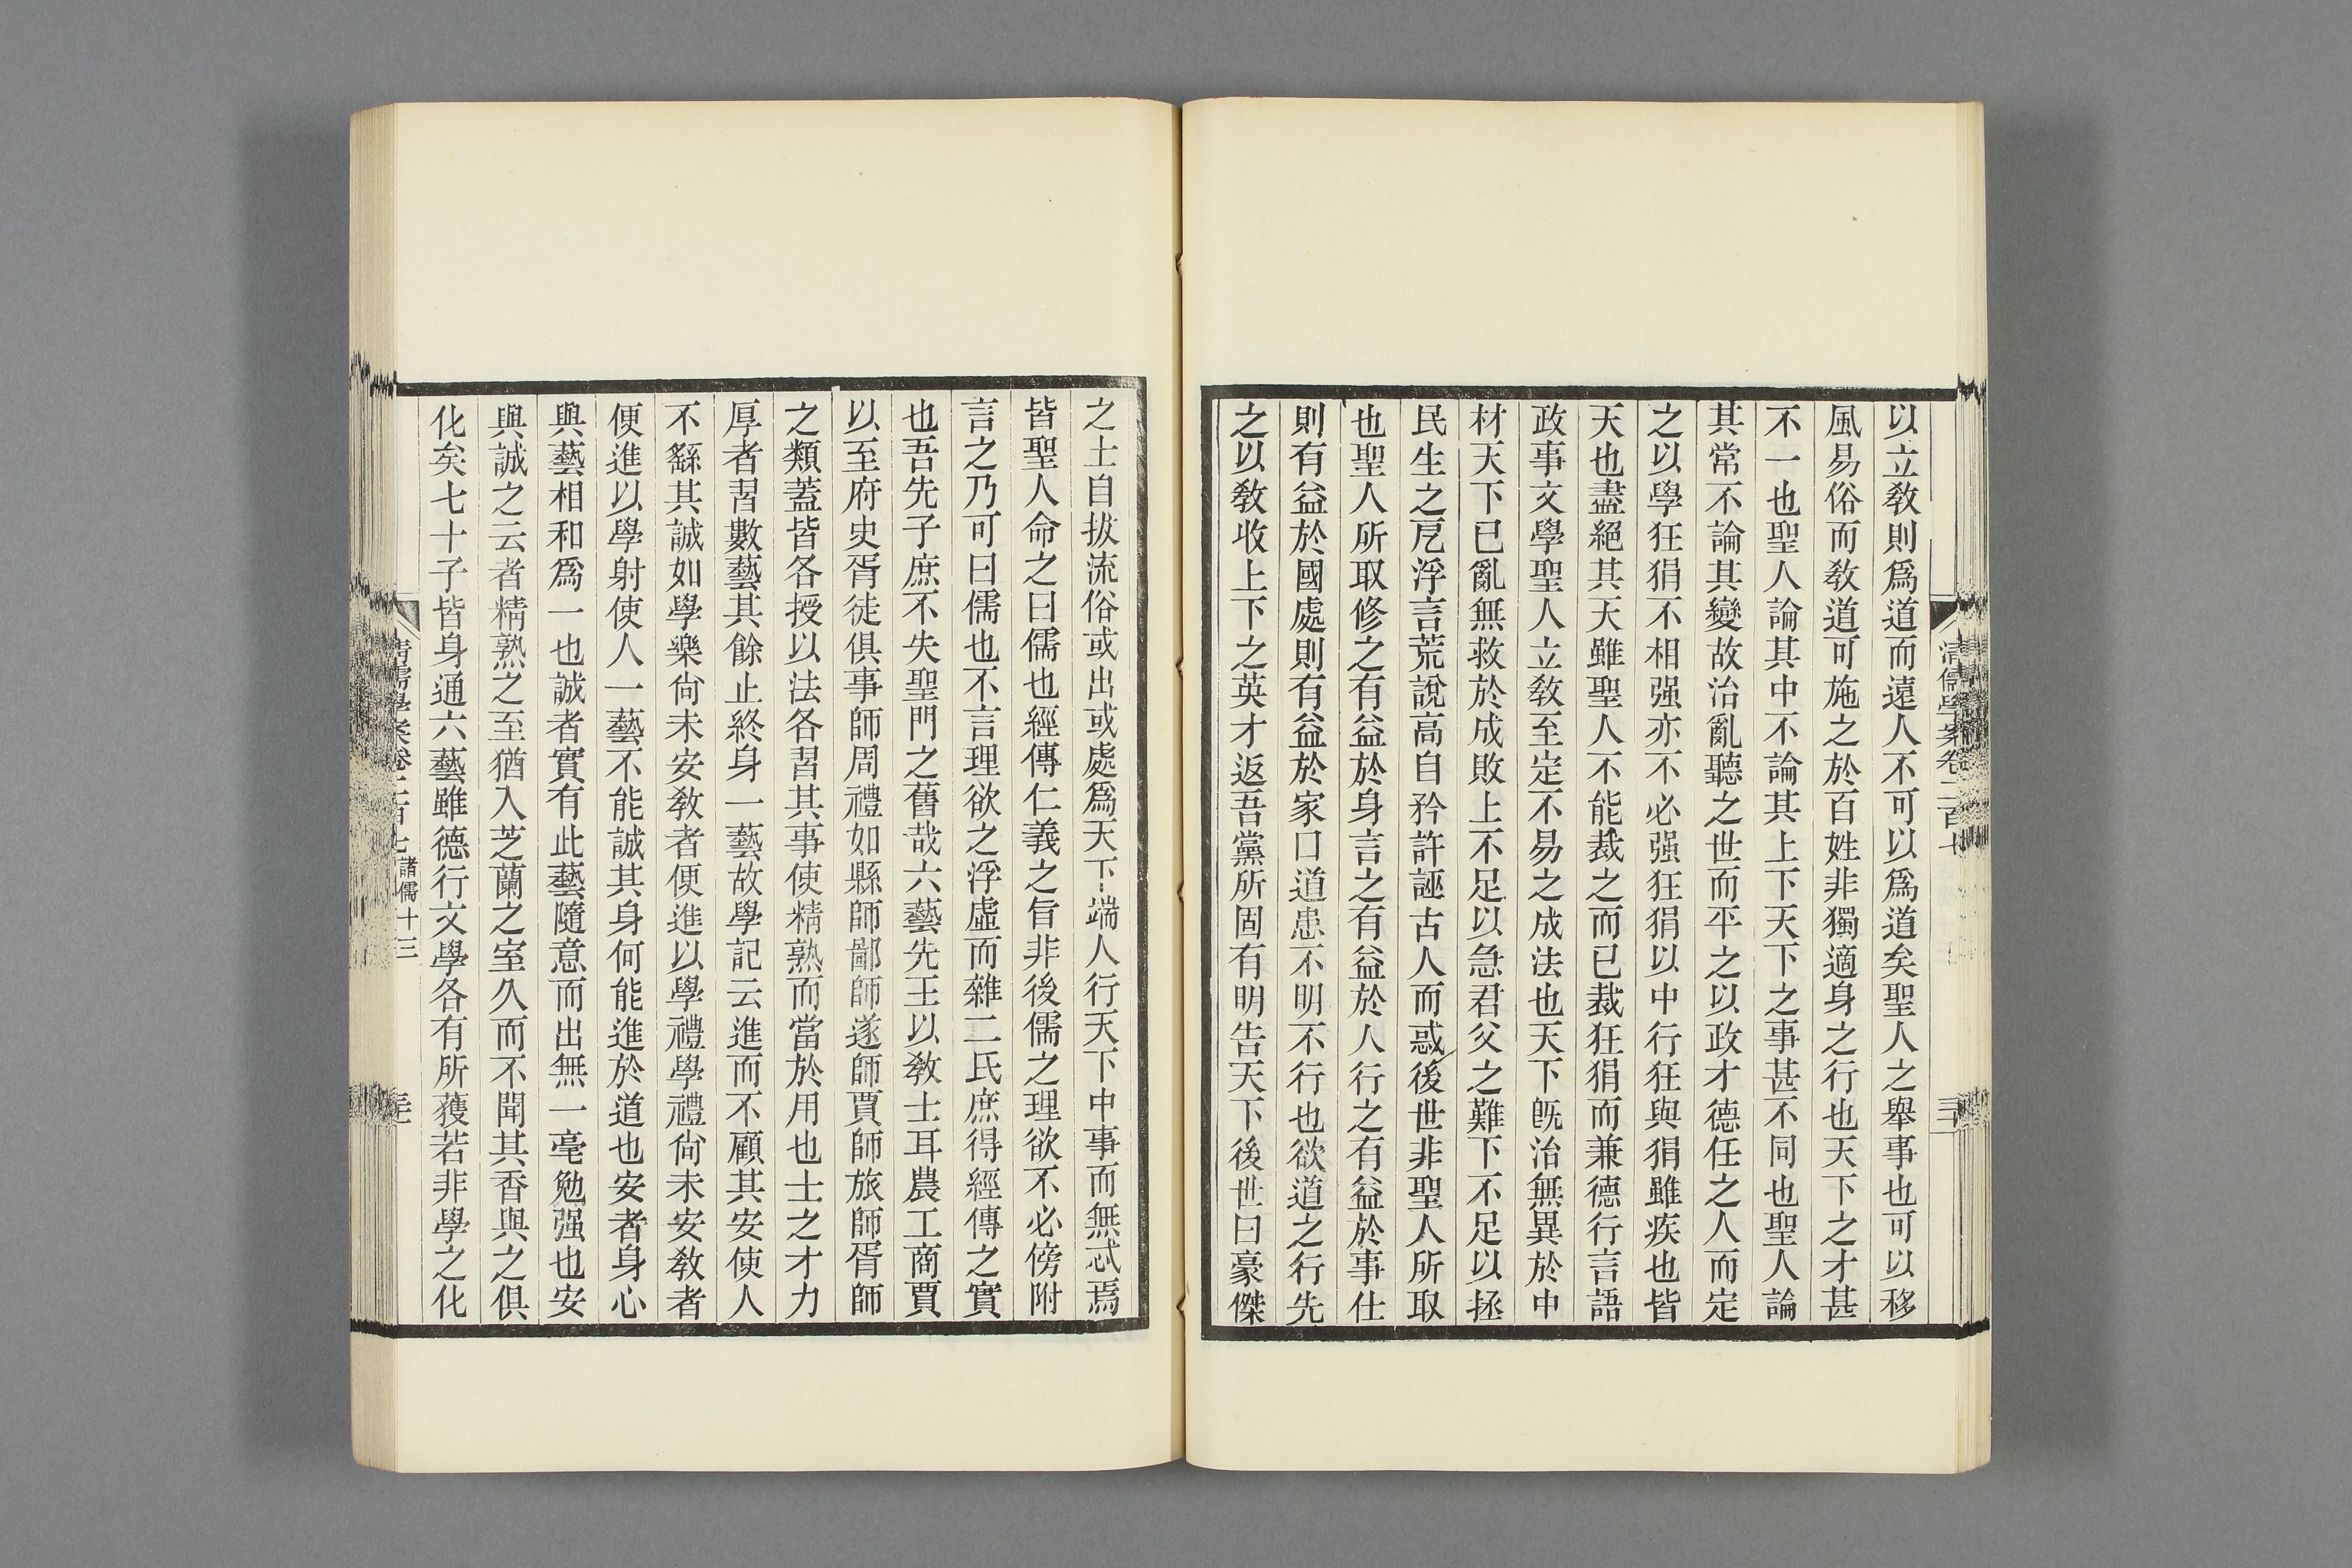 清儒學案卷二百七
以立敎則爲道而遠人不可以爲道矣聖人之舉事也可以移
風易俗而敎道可施之於百姓非獨適身之行也天下之才甚
不一也聖人論其中不論其上下天下之事甚不同也聖人論
其常不論其變故治亂聽之世而平之以政才德任之人而定
之以學狂狷不相强亦不必强狂狷以中行狂與狷雖疾也皆
天也盡絕其天雖聖人不能裁之而已裁狂狷而兼德行言語
政事文學聖人立敎至定不易之成法也天下旣治無異於中
材天下已亂無救於成敗上不足以急君父之難下不足以拯
民生之戹浮言荒說高自矜許誣古人而惑後世非聖人所取
也聖人所取修之有益於身言之有益於人行之有益於事仕
則有益於國處則有益於家口道患不明不行也欲道之行先
之以敎收上下之英才返吾黨所固有明告天下後世曰豪傑
之士自拔流俗或出或處爲天下端人行天下中事而無忒焉
皆聖人命之曰儒也經傳仁義之旨非後儒之理欲不必傍附
言之乃可曰儒也不言理欲之浮虛而雜二氏庶得經傳之實
也吾先子庶不失聖門之舊哉六藝先王以敎士耳農工商賈
以至府史胥徒俱事師周禮如縣師鄙師遂師賈師旅師胥師
之類蓋皆各授以法各習其事使精熟而當於用也士之才力
厚者習數藝其餘止終身一藝故學記云進而不顧其安使人
不繇其誠如學樂尙未安敎者便進以學禮學禮尙未安敎者
便進以學射使人一藝不能誠其身何能進於道也安者身心
與藝相和爲一也誠者實有此藝隨意而出無一毫勉强也安
與誠之云者精熟之至猶入芝蘭之室久而不聞其香與之俱
化矣七十子皆身通六藝雖德行文學各有所獲若非學之化
清儒學案卷二百七
諸儒十三